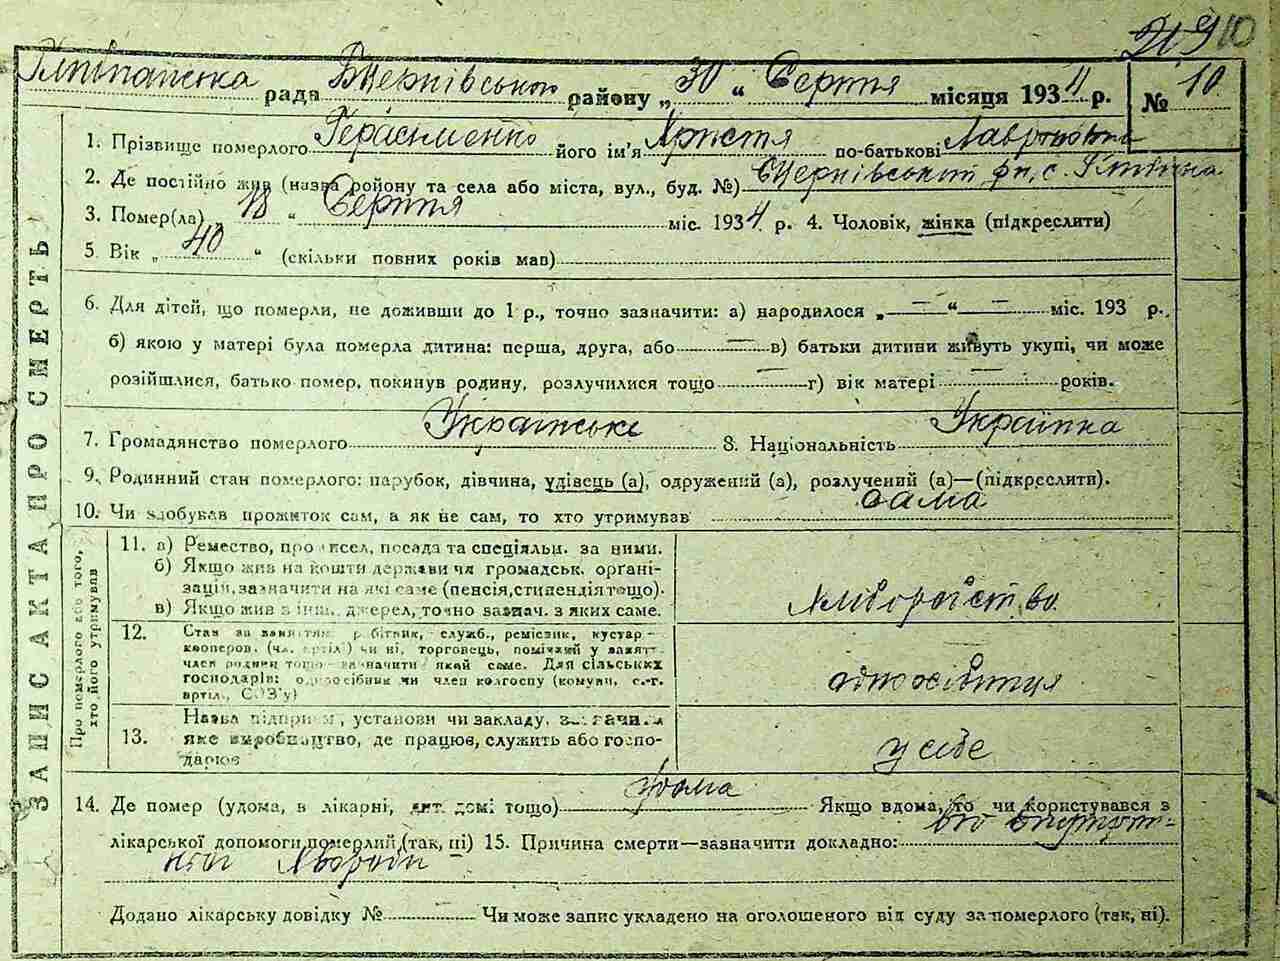 10
рада району „30“ Серпня місяця 1934 р. № 10
1. Прізвище померлого Герасименко його ім'я Христя по-батькові
2. Де постійно жив (назва району та села або міста, вул., буд. №)
3. Помер(ла) „18“ Серпня міс. 1934 р. 4. Чоловік, жінка (підкреслити)
5. Вік „40“ (скільки повних років мав)
6. Для дітей, що померли, не доживши до 1 р., точно зазначити: а) народилося „—“ — міс. 193 р.
б) якою у матері була померла дитина: перша, друга, або — в) батьки дитини живуть укупі, чи може
розійшлися, батько помер, покинув родину, розлучилися тощо — г) вік матері — років.
7. Громадянство померлого Українське 8. Національність Українка
9. Родинний стан померлого: парубок, дівчина, удівець (а), одружений (а), розлучений (а)—(підкреслити).
10. Чи здобував прожиток сам, а як не сам, то хто утримував сама
ЗАПИС АКТА ПРО СМЕРТЬ
Про померлого або того,
хто його утримував
11. а) Ремество, промисел, посада та спеціяльн. за ними.
б) Якщо жив на кошти держави чи громадськ. орґані-
зацій, зазначити на які саме (пенсія, стипендія тощо).
в) Якщо жив з інш. джерел, точно зазнач. з яких саме.
хліборобство
12. Стан за заняттям робітник, служб., ремісник, кустар—
кооперов. (чл. артілі) чи ні, торговець, поміжний у занятт.
член родини тощо—зазначити який саме. Для сільських
господарів: одноосібник чи член колгоспу (комуни, с.-г.
артіл., СОЗ'у)
13. Назва підприєм, установи чи закладу, зазначити
яке виробництво, де працює, служить або госпо-
дарює
у себе
14. Де помер (удома, в лікарні, дит. домі тощо) удома Якщо вдома, то чи користувався з
лікарської допомоги померлий (так, ні) 15. Причина смерти—зазначити докладно:
Додано лікарську довідку № — Чи може запис укладено на оголошеного від суду за померлого (так, ні).